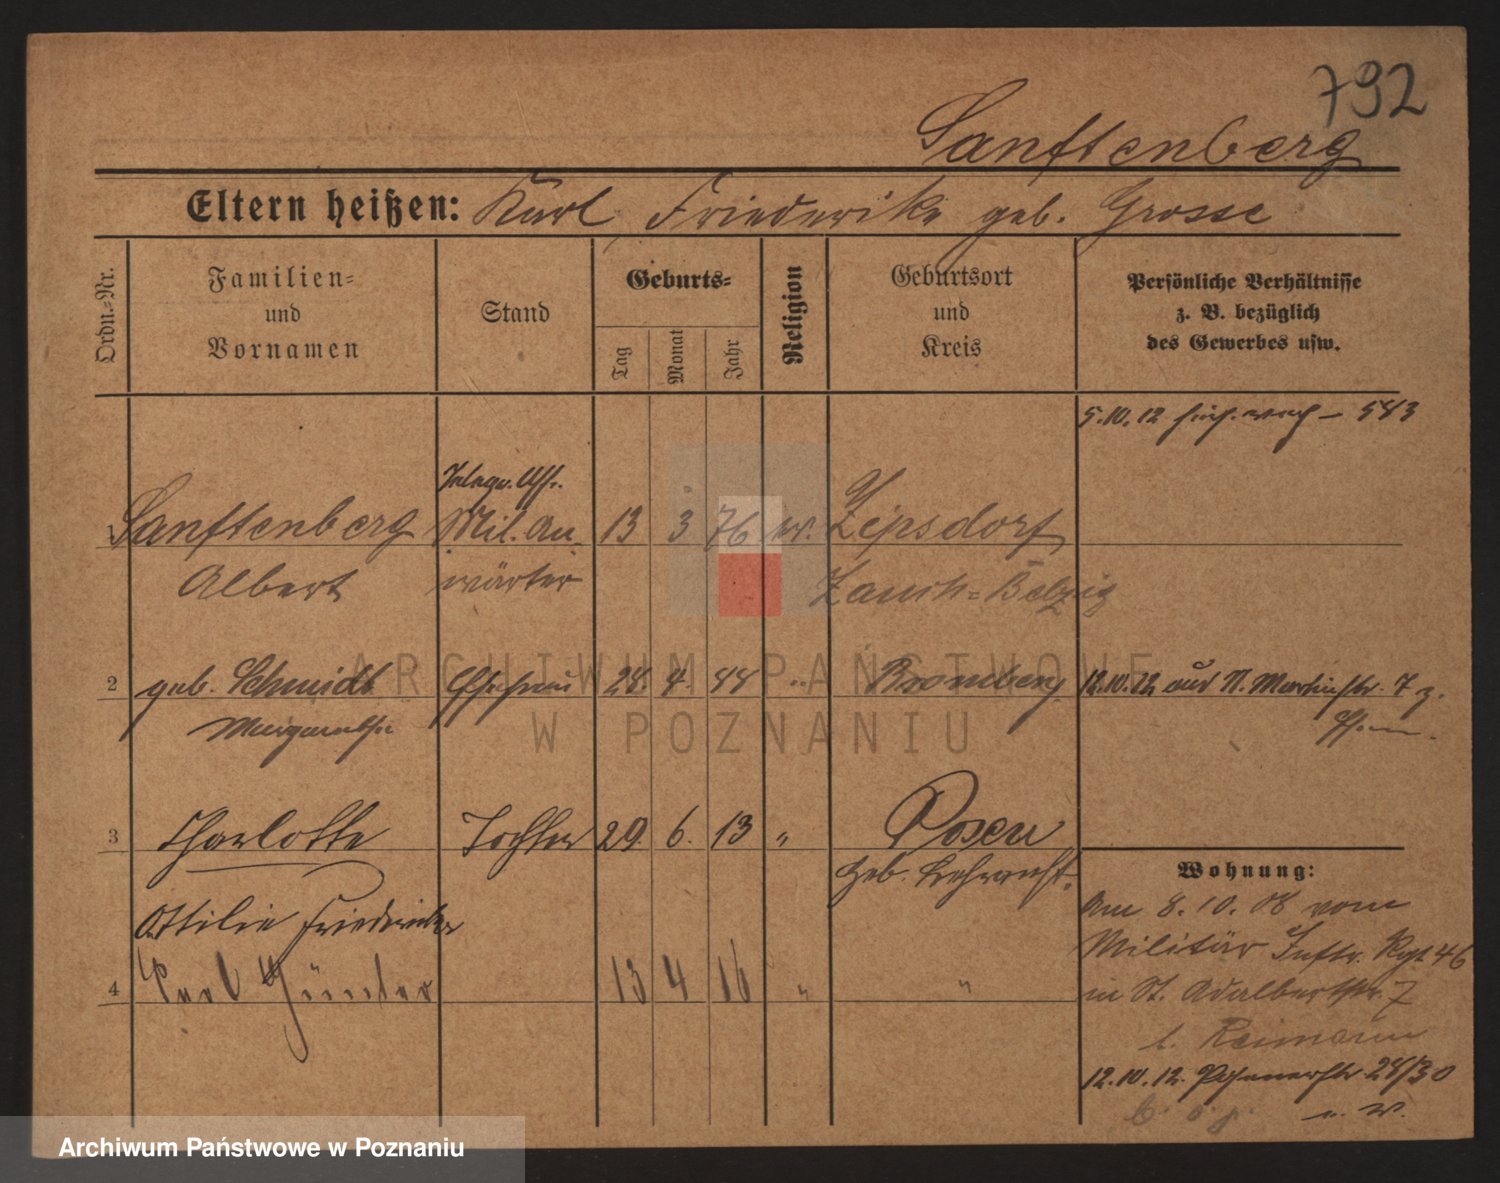 792
Sanftenberg
Eltern heißen: Karl Friederike geb. Grosse
Ordn.-Nr.
Familien-
und
Vornamen
Stand
Geburts-
Tag
Monat
Jahr
Religion
Geburtsort
und
Kreis
Persönliche Verhältnisse
z. B. bezüglich
des Gewerbes usw.
5.10.12 583
1 Sanftenberg Mil. An- 13 3 76 Zipsdorf
Albert wärter Zauch-Belzig
2 geb. Schmidt Ehefrau 28. 4. 88 " Bromberg 12.10.12 aus St. Martinstr. 7 z.
Margarethe
3 Charlotte Tochter 29. 6. 13 " Posen
Ottilie Friederike
4 Karl Günter 13 4 16 " "
Wohnung:
Am 8.10.08 vom
Militär Inftr. Rgt 46
in St. Adalbertstr. 7
b. Reimann
12.10.12. Posenerstr 28/30
ARCHIWUM PAŃSTWOWE
W POZNANIU
Archiwum Państwowe w Poznaniu